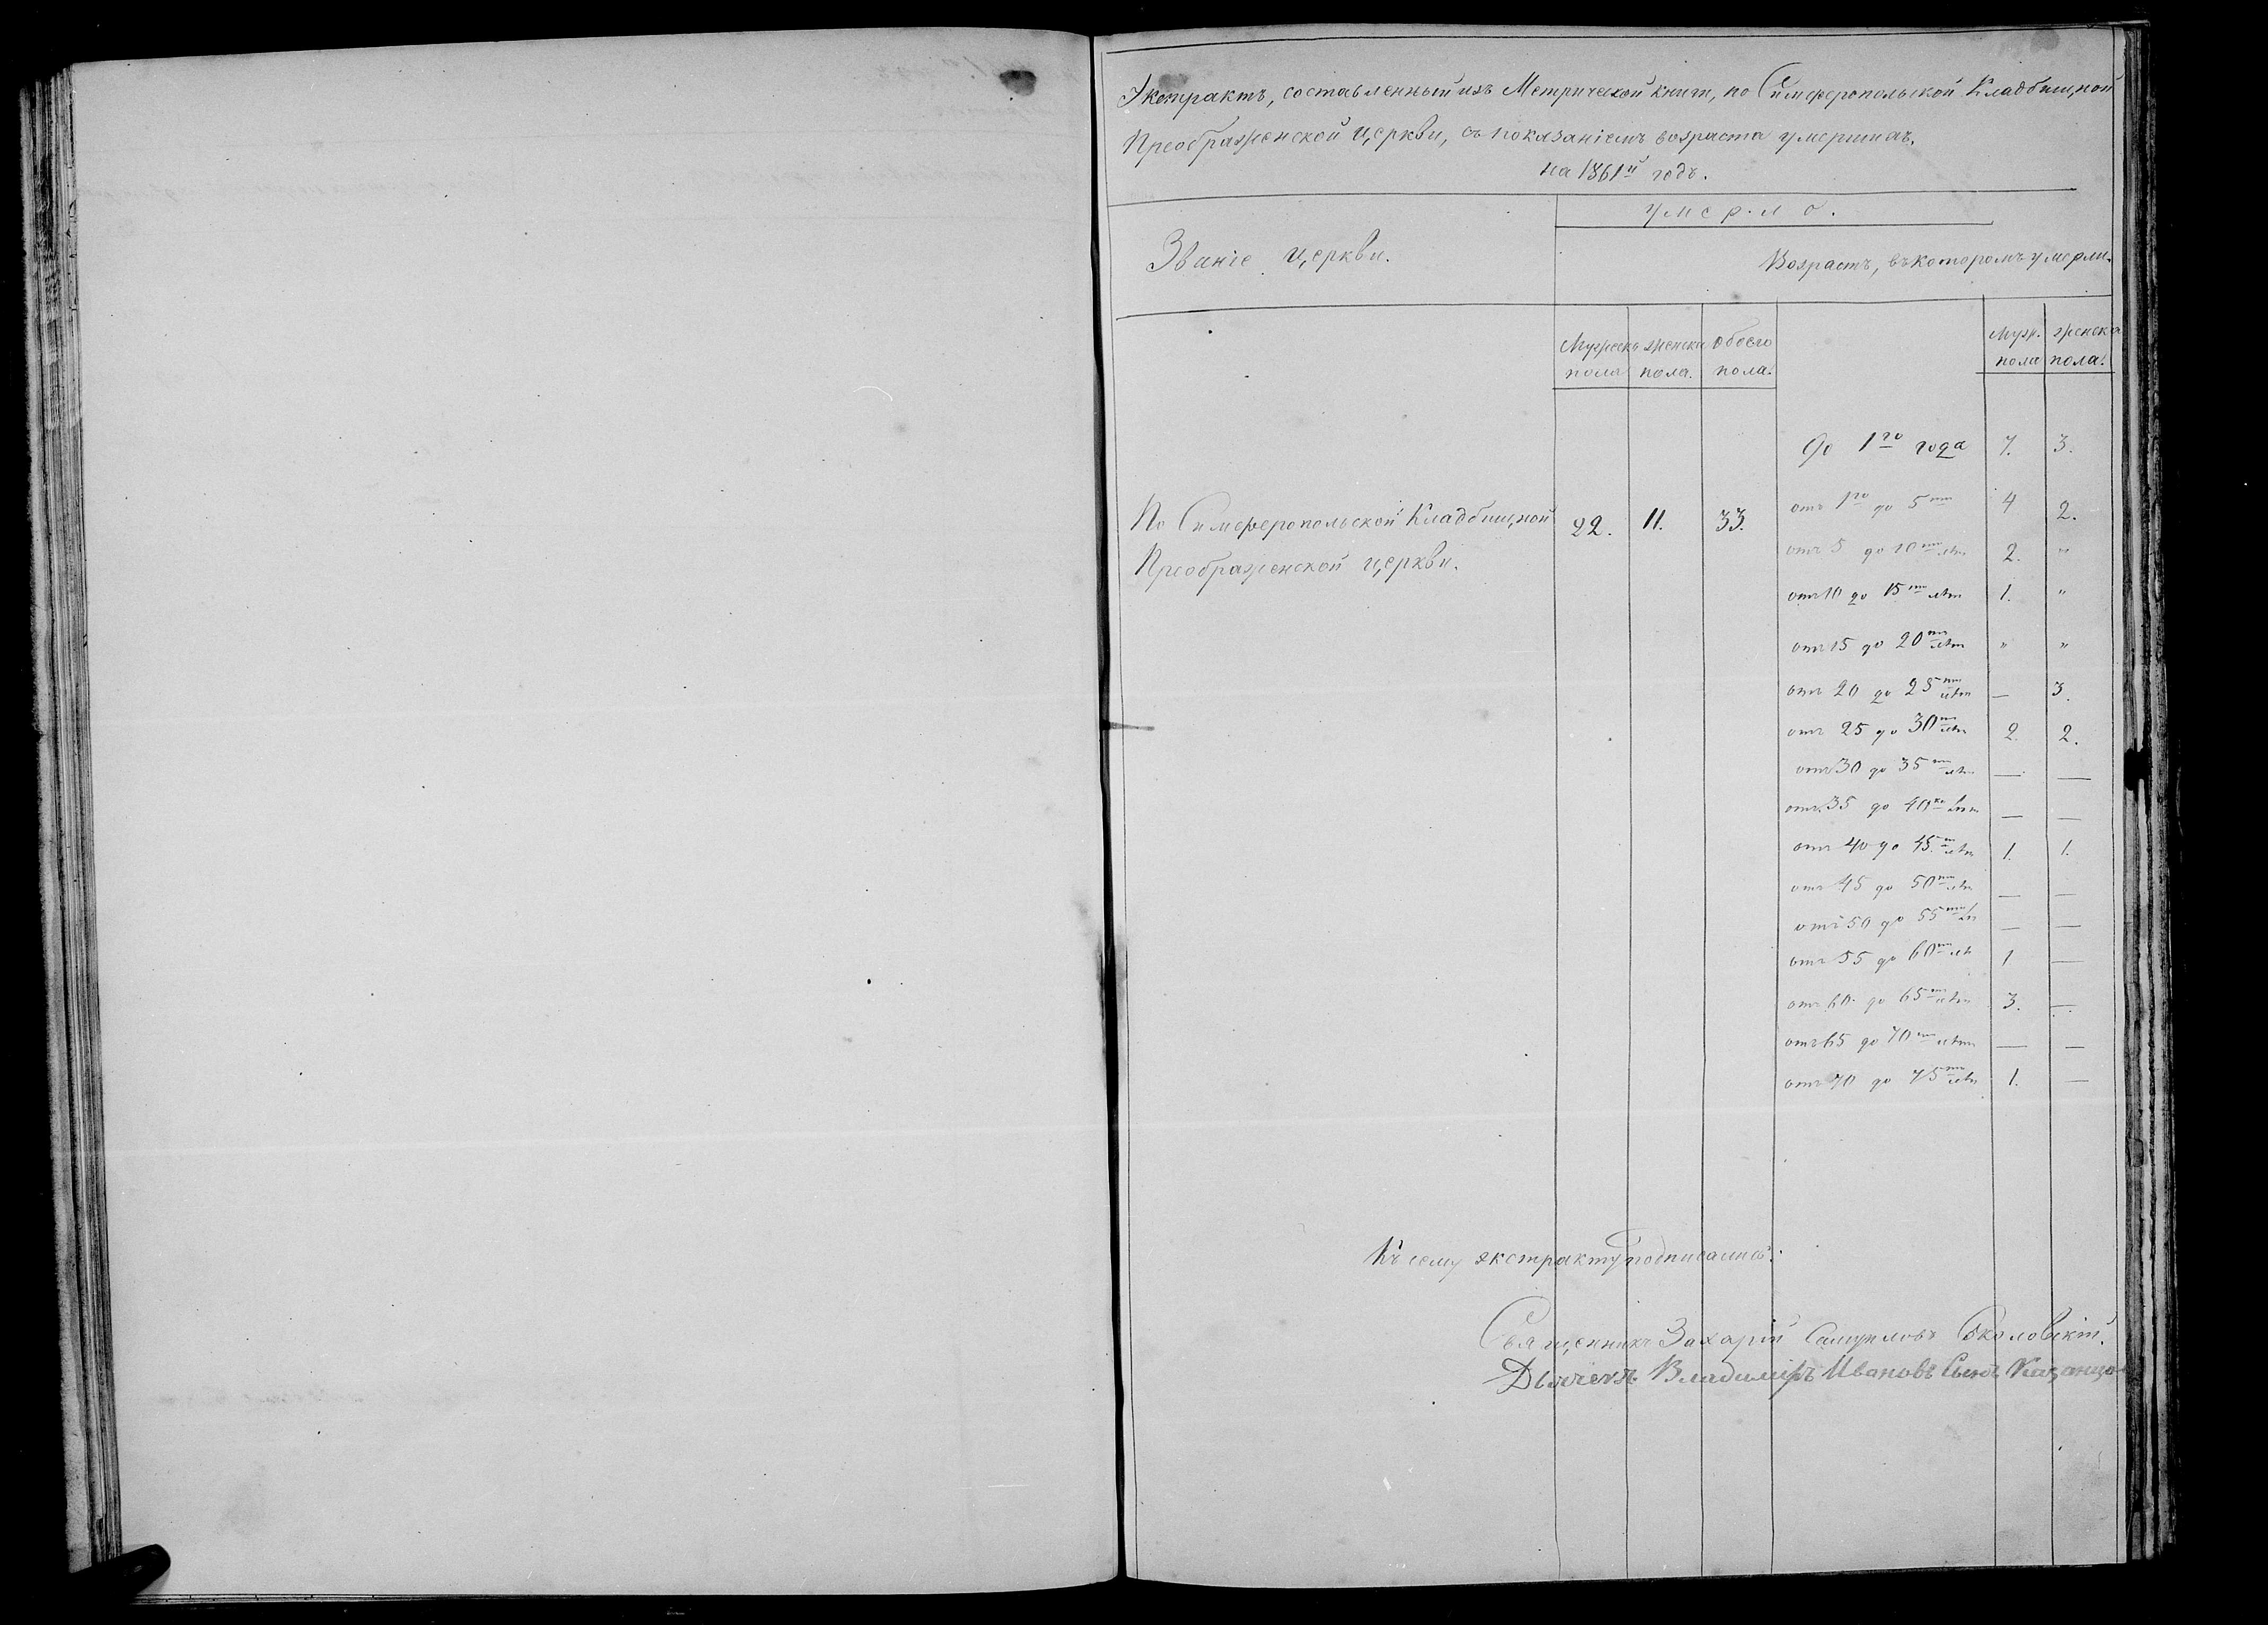 Экстрактъ, составленный изъ Метрической книги, по Симферопольской Кладбищной
Преображенской церкви, съ показаніемъ возраста умершихъ.
на 1861й годъ.
Званіе церкви.
умерло.
Возрастъ, въ которомъ умерли.
Мужеска пола
женска пола.
Обоего пола.
Муж. пола
женска пола.
По Симферопольской Кладбищной
Преображенской церкви.
22. 11. 33.
до 1го года 7. 3.
отъ 1го до 5ти 4 2.
отъ 5 до 10ти лѣт 2. "
отъ 10 до 15ти лѣт 1. "
отъ 15 до 20ти лѣт " "
отъ 20 до 25ти лѣт — 3.
отъ 25 до 30ти лѣт 2. 2.
отъ 30 до 35ти лѣт — —
отъ 35 до 40ка лѣт — —
отъ 40 до 45ти лѣт 1. 1.
отъ 45 до 50ти лѣт — —
отъ 50 до 55ти лѣт — —
отъ 55 до 60ти лѣт 1 —
отъ 60 до 65ти лѣт 3. —
отъ 65 до 70ти лѣт — —
отъ 70 до 75ти лѣт 1. —
Къ сему экстракту подписались:
Священникъ Захарій Самуиловъ Соколовскій.
Дьячекъ Владиміръ Ивановъ Сынъ